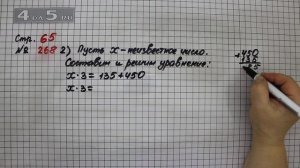 4DA5.RU
Стр. 65
№ 268 2) Пусть x - неизвестное число.
Составим и решим уравнение:
x · 3 = 135 + 450
x · 3 =
+ 450
135